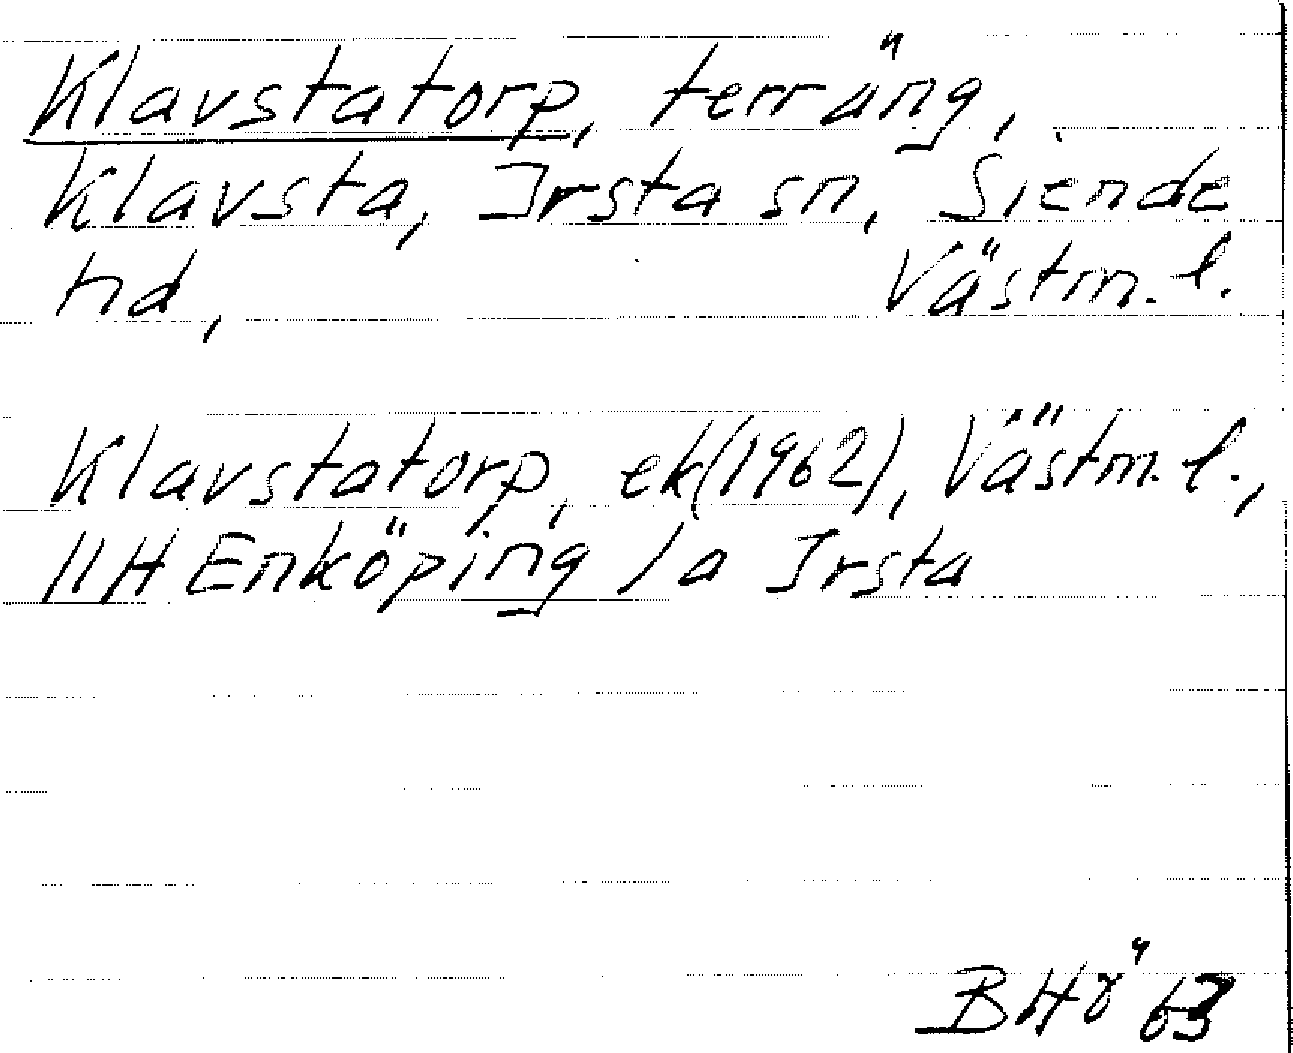 Klavstatorp, terräng,
Klavsta, Irsta sn, Siende
hd, Västm. l.
Klavstatorp, ek (1962), Västm. l.,
11H Enköping 1a Irsta
BHö 63